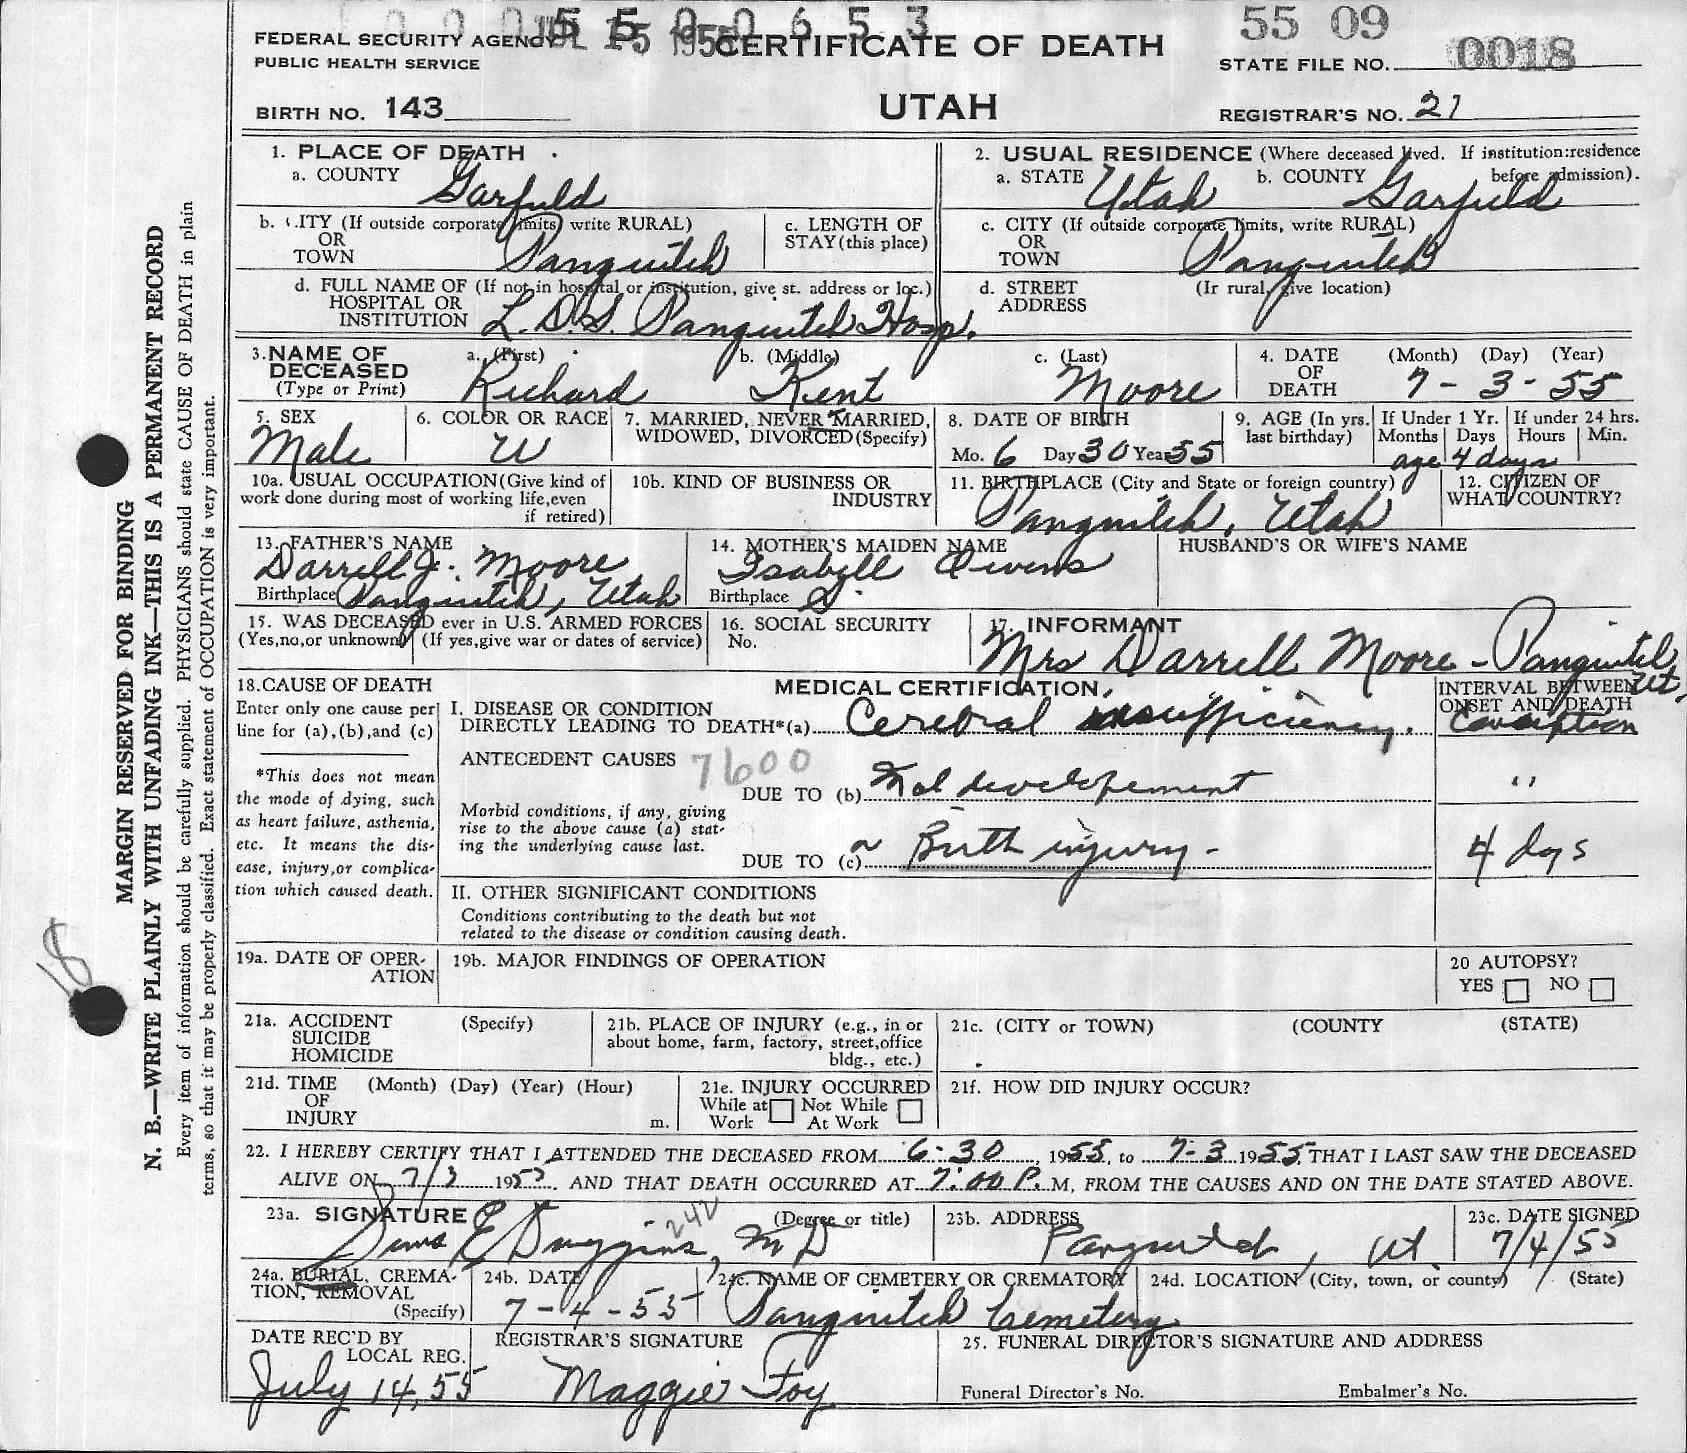 5 5 0 0 6 5 3
55 09
FEDERAL SECURITY AGENCY
JUL 15 1955
CERTIFICATE OF DEATH
PUBLIC HEALTH SERVICE
STATE FILE NO. 0018
BIRTH NO. 143
UTAH
REGISTRAR'S NO. 21
1. PLACE OF DEATH
a. COUNTY Garfield
2. USUAL RESIDENCE (Where deceased lived. If institution:residence before admission).
a. STATE Utah b. COUNTY Garfield
b. CITY (If outside corporate limits, write RURAL) OR TOWN Panguitch
c. LENGTH OF STAY (this place)
c. CITY (If outside corporate limits, write RURAL) OR TOWN Panguitch
d. FULL NAME OF (If not in hospital or institution, give st. address or loc.)
HOSPITAL OR INSTITUTION L.D.S. Panguitch Hosp.
d. STREET ADDRESS (Ir rural, give location)
3. NAME OF DECEASED (Type or Print)
a. (First) Richard b. (Middle) Kent c. (Last) Moore
4. DATE OF DEATH (Month) (Day) (Year) 7-3-55
5. SEX Male
6. COLOR OR RACE W
7. MARRIED, NEVER MARRIED, WIDOWED, DIVORCED (Specify)
8. DATE OF BIRTH
Mo. 6 Day 30 Year 55
9. AGE (In yrs. last birthday)
If Under 1 Yr. Months Days
If under 24 hrs. Hours Min.
age 4 days
10a. USUAL OCCUPATION (Give kind of work done during most of working life, even if retired)
10b. KIND OF BUSINESS OR INDUSTRY
11. BIRTHPLACE (City and State or foreign country)
Panguitch, Utah
12. CITIZEN OF WHAT COUNTRY?
13. FATHER'S NAME
Darrell J. Moore
Birthplace Panguitch, Utah
14. MOTHER'S MAIDEN NAME
Isabell Owens
Birthplace
HUSBAND'S OR WIFE'S NAME
15. WAS DECEASED ever in U.S. ARMED FORCES
(Yes,no,or unknown) (If yes,give war or dates of service)
16. SOCIAL SECURITY No.
17. INFORMANT
Mrs Darrell Moore - Panguitch, Ut.
18. CAUSE OF DEATH
Enter only one cause per line for (a), (b), and (c)
MEDICAL CERTIFICATION
INTERVAL BETWEEN ONSET AND DEATH
I. DISEASE OR CONDITION
DIRECTLY LEADING TO DEATH*(a) Cerebral insufficiency.
ANTECEDENT CAUSES 7600
DUE TO (b) Maldevelopement "
*This does not mean the mode of dying, such as heart failure, asthenia, etc. It means the disease, injury,or complication which caused death.
Morbid conditions, if any, giving rise to the above cause (a) stating the underlying cause last.
DUE TO (c) or Birth injury - 4 days
II. OTHER SIGNIFICANT CONDITIONS
Conditions contributing to the death but not related to the disease or condition causing death.
19a. DATE OF OPERATION
19b. MAJOR FINDINGS OF OPERATION
20 AUTOPSY?
YES NO
21a. ACCIDENT SUICIDE HOMICIDE (Specify)
21b. PLACE OF INJURY (e.g., in or about home, farm, factory, street,office bldg., etc.)
21c. (CITY or TOWN) (COUNTY (STATE)
21d. TIME OF INJURY (Month) (Day) (Year) (Hour) m.
21e. INJURY OCCURRED
While at Work Not While At Work
21f. HOW DID INJURY OCCUR?
22. I HEREBY CERTIFY THAT I ATTENDED THE DECEASED FROM 6-30, 1955, to 7-3 1955, THAT I LAST SAW THE DECEASED
ALIVE ON 7/3 1955, AND THAT DEATH OCCURRED AT 7:00 P. M, FROM THE CAUSES AND ON THE DATE STATED ABOVE.
23a. SIGNATURE (Degree or title)
Sims E Duggins, MD
242
23b. ADDRESS
Panguitch, Ut
23c. DATE SIGNED
7/4/55
24a. BURIAL, CREMATION, REMOVAL (Specify)
24b. DATE
7-4-55
24c. NAME OF CEMETERY OR CREMATORY
Panguitch Cemetery
24d. LOCATION (City, town, or county) (State)
DATE REC'D BY LOCAL REG.
July 14, 55
REGISTRAR'S SIGNATURE
Maggie Foy
25. FUNERAL DIRECTOR'S SIGNATURE AND ADDRESS
Funeral Director's No. Embalmer's No.
MARGIN RESERVED FOR BINDING
N. B.—WRITE PLAINLY WITH UNFADING INK—THIS IS A PERMANENT RECORD
Every item of information should be carefully supplied. PHYSICIANS should state CAUSE OF DEATH in plain
terms, so that it may be properly classified. Exact statement of OCCUPATION is very important.
18